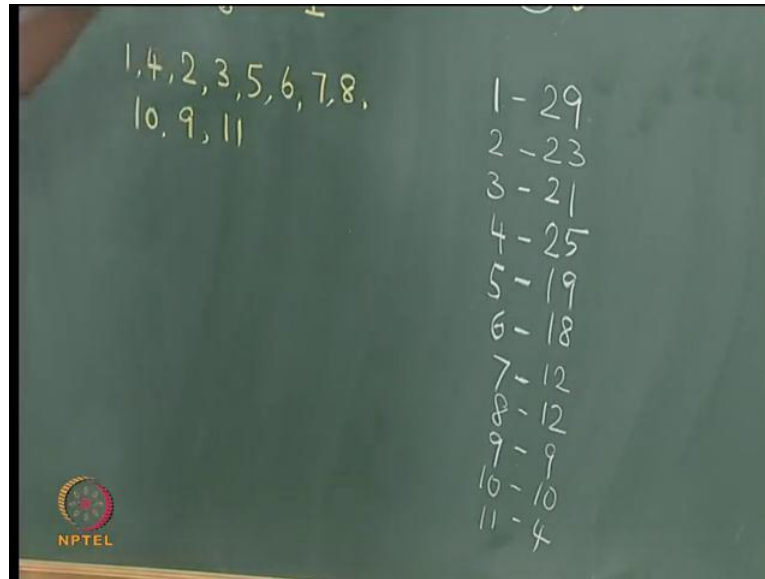 1, 4, 2, 3, 5, 6, 7, 8,
10, 9, 11
1 - 29
2 - 23
3 - 21
4 - 25
5 - 19
6 - 18
7 - 12
8 - 12
9 - 9
10 - 10
11 - 4
NPTEL